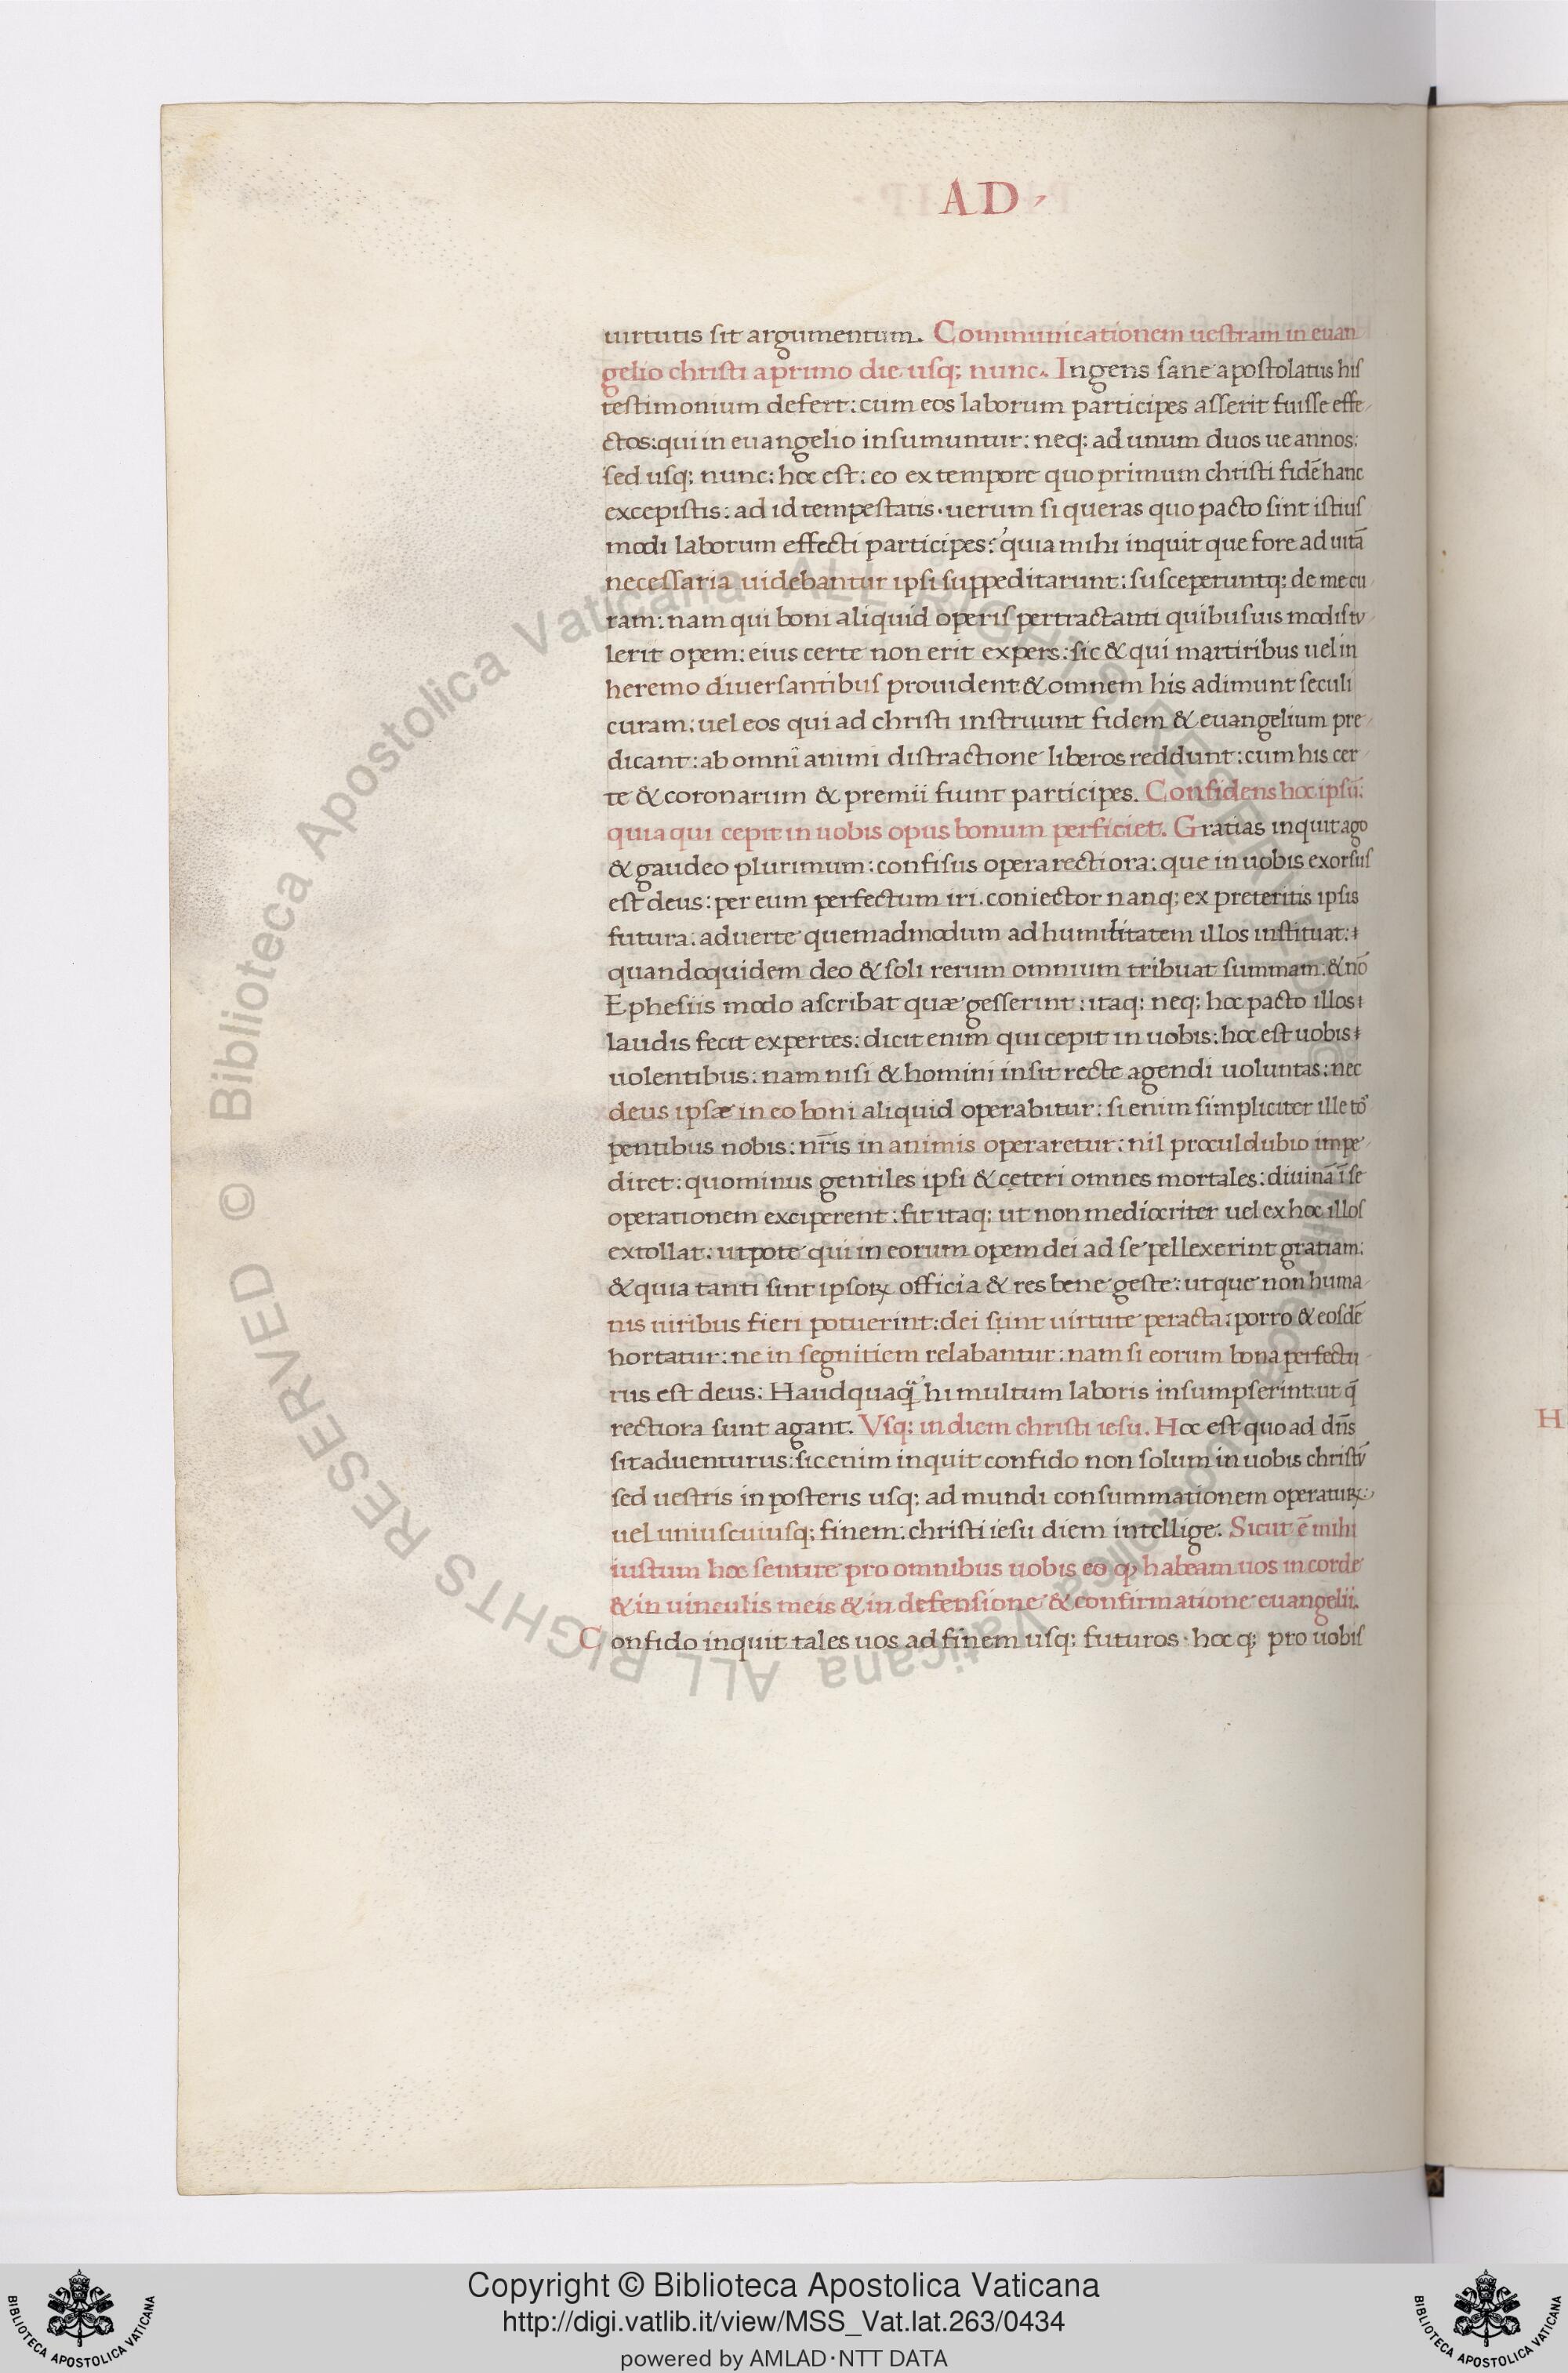 AD
uirtutis sit argumentum. Communicationem uestram in euan
gelio christi a primo die usq; nunc. Ingens sane apostolatus his
testimonium defert: cum eos laborum participes asserit fuisse effe
ctos: qui in euangelio insumuntur: neq; ad unum duos ue annos:
sed usq; nunc: hoc est: eo ex tempore quo primum christi fidē hanc
excepistis: ad id tempestatis. uerum si queras quo pacto sint istius
modi laborum effecti participes: quia mihi inquit que fore ad uitā
necessaria uidebantur ipsi suppeditarunt: susceperuntq; de me cu
ram: nam qui boni aliquid operis pertractanti quibusuis modis tu
lerit opem: eius certe non erit expers: sic & qui martiribus uel in
heremo diuersantibus prouident & omnem his adimunt seculi
curam: uel eos qui ad christi instruunt fidem & euangelium pre
dicant: ab omni animi distractione liberos reddunt: cum his cer
te & coronarum & premii fiunt participes. Confidens hoc ipsū:
quia qui cepit in uobis opus bonum perficiet. Gratias inquit ago
& gaudeo plurimum: confisus opera rectiora: que in uobis exorsus
est deus: per eum perfectum iri. coniector nanq; ex preteritis ipsis
futura. aduerte quemadmodum ad humilitatem illos instituat:
quandoquidem deo & soli rerum omnium tribuat summam: & nō
Ephesiis modo ascribat quæ gesserint: itaq; neq; hoc pacto illos
laudis fecit expertes: dicit enim qui cepit in uobis: hoc est uobis
uolentibus: nam nisi & homini insit recte agendi uoluntas: nec
deus ipsæ in eo boni aliquid operabitur: si enim simpliciter ille to
pentibus nobis: nr̄is in animis operaretur: nil proculdubio impe
diret: quominus gentiles ipsi & ceteri omnes mortales: diuinā ī se
operationem exciperent: fit itaq; ut non mediocriter uel ex hoc illos
extollat: utpote qui in eorum opem dei ad se pellexerint gratiam:
& quia tanti sint ipsoꝝ officia & res bene geste: ut que non huma
nis uiribus fieri potuerint: dei sunt uirtute peracta: porro & eosdē
hortatur: ne in segnitiem relabantur: nam si eorum bona perfectu
rus est deus: Haudquaq̄ hi multum laboris insumpserint: ut q̄
rectiora sunt agant. Vsq; in diem christi iesu. Hoc est quo ad dn̄s
sit aduenturus: sic enim inquit confido non solum in uobis christū
sed uestris in posteris usq; ad mundi consummationem operatuꝝ:
uel uniuscuiusq; finem: christi iesu diem intellige. Sicut ē mihi
iustum hoc sentire pro omnibus uobis eo ꝙ habeam uos in corde
& in uinculis meis & in defensione & confirmatione euangelii.
Confido inquit tales uos ad finem usq; futuros. hoc q; pro uobis
H
© Biblioteca Apostolica Vaticana ALL RIGHTS RESERVED © Biblioteca Apostolica Vaticana ALL RIGHTS RESERVED
Copyright © Biblioteca Apostolica Vaticana
http://digi.vatlib.it/view/MSS_Vat.lat.263/0434
powered by AMLAD·NTT DATA
BIBLIOTECA APOSTOLICA VATICANA
BIBLIOTECA APOSTOLICA VATICANA